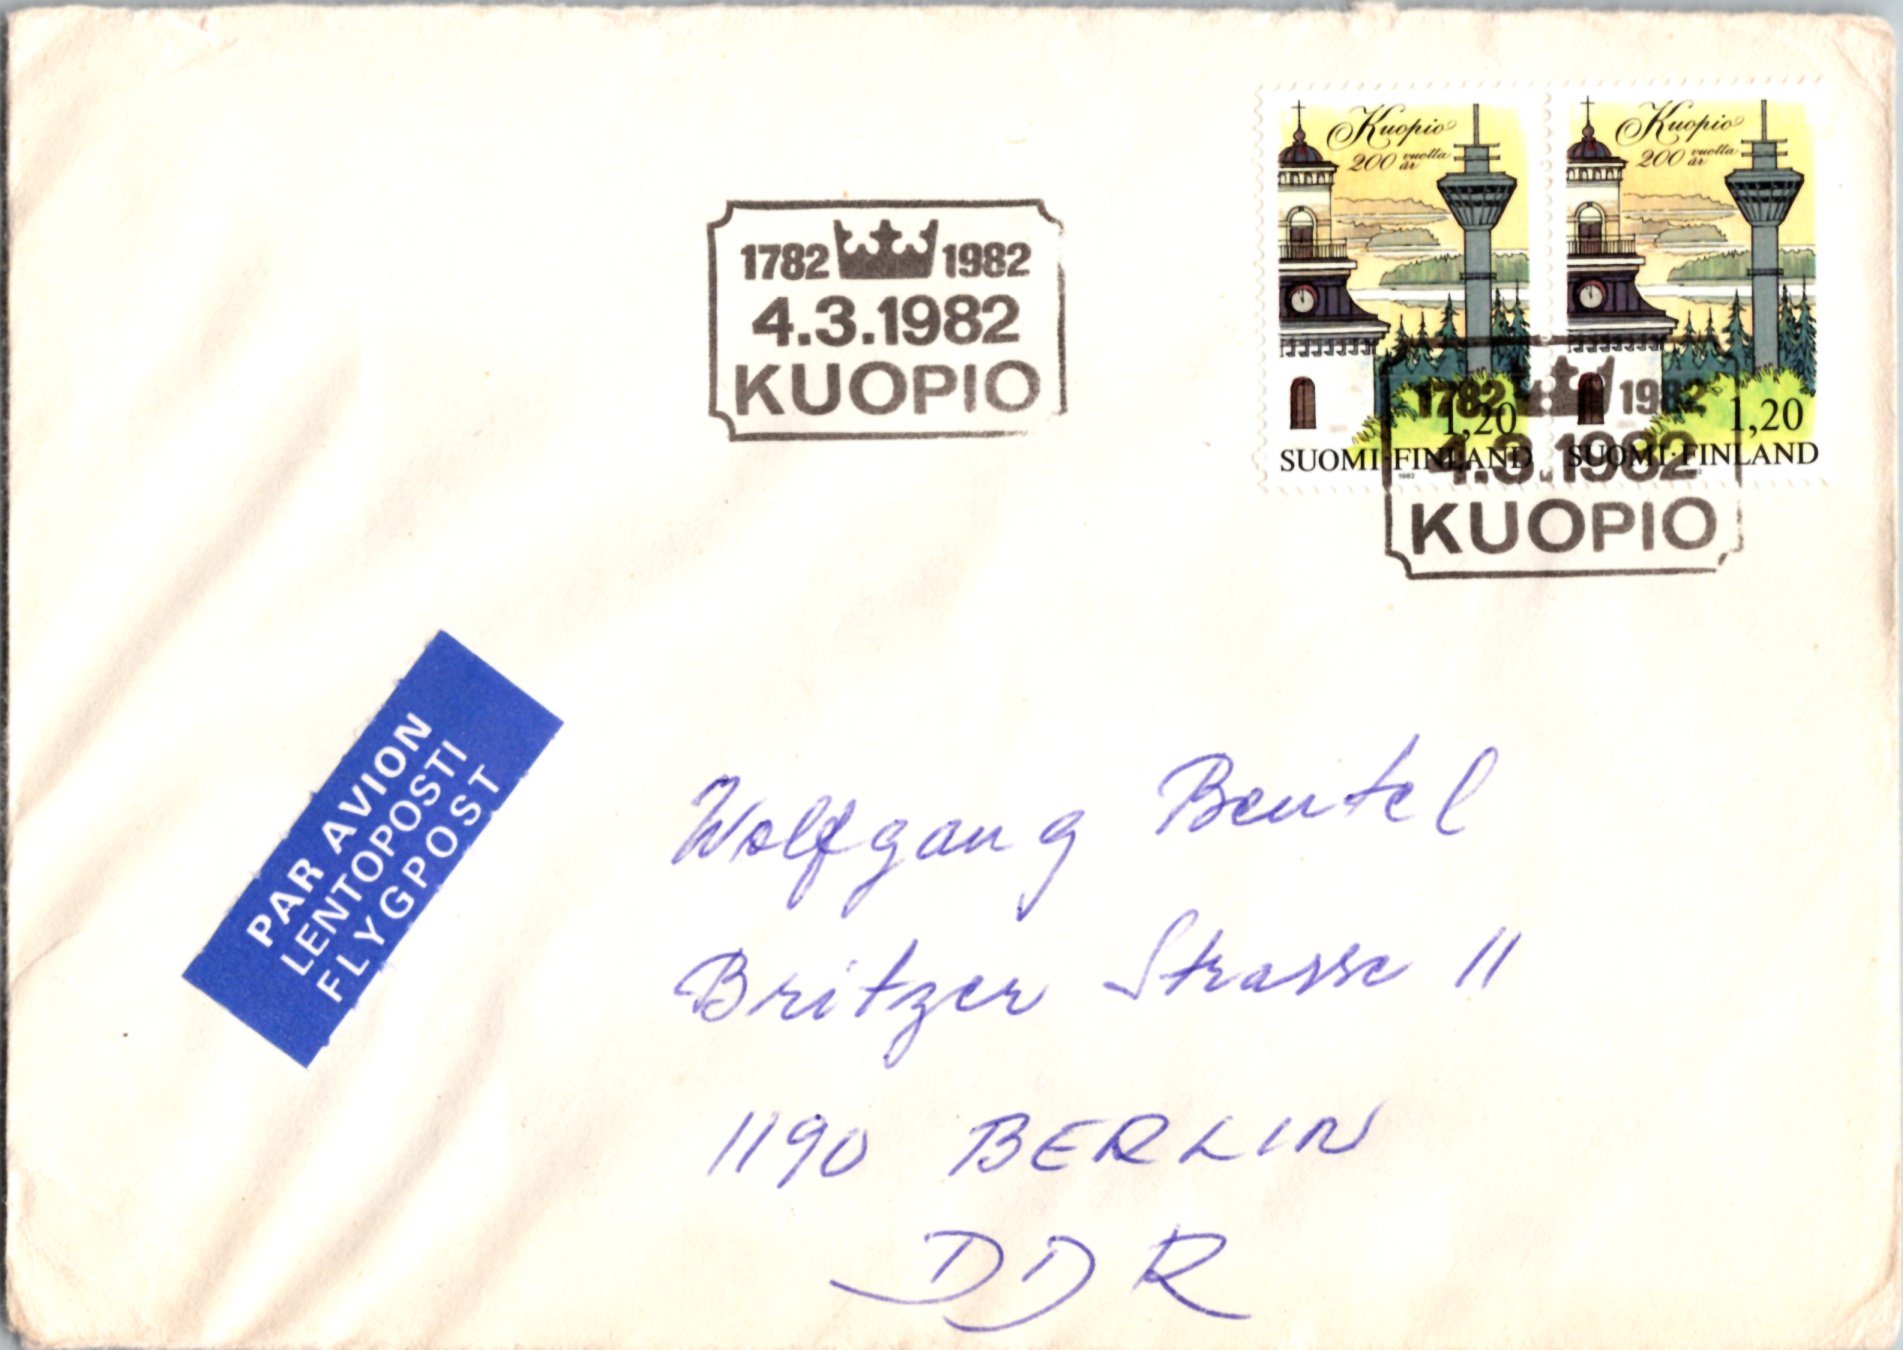 1782 1982
4.3.1982
KUOPIO
Kuopio
200 vuotta
år
1,20
SUOMI·FINLAND
1982
Kuopio
200 vuotta
år
1,20
SUOMI·FINLAND
1982
1782 1982
4.3.1982
KUOPIO
PAR AVION
LENTOPOSTI
FLYGPOST
Wolfgang Beutel
Britzer Strasse 11
1190 BERLIN
DDR